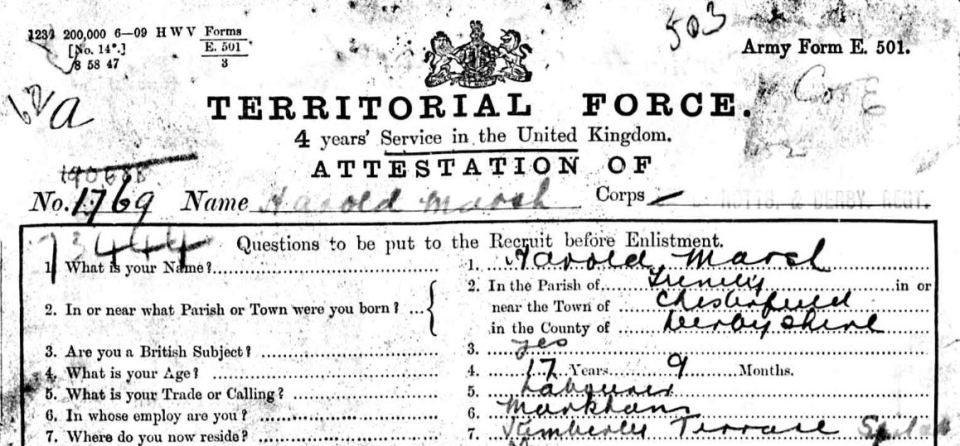 1234 200,000 6—09 H W V Forms
[No. 14*.] E. 501
8 58 47 3
503
Army Form E. 501.
62 a
TERRITORIAL FORCE.
4 years' Service in the United Kingdom.
ATTESTATION OF
No. 1769 Name Harold Marsh Corps NOTTS. & DERBY. REGT.
73444 Questions to be put to the Recruit before Enlistment.
1. What is your Name? 1. Harold Marsh
2. In or near what Parish or Town were you born? 2. In the Parish of Trinity in or
near the Town of Chesterfield
in the County of Derbyshire
3. Are you a British Subject? 3. yes
4. What is your Age? 4. 17 Years 9 Months.
5. What is your Trade or Calling? 5. Labourer
6. In whose employ are you? 6. Markhams
7. Where do you now reside? 7. Terrace